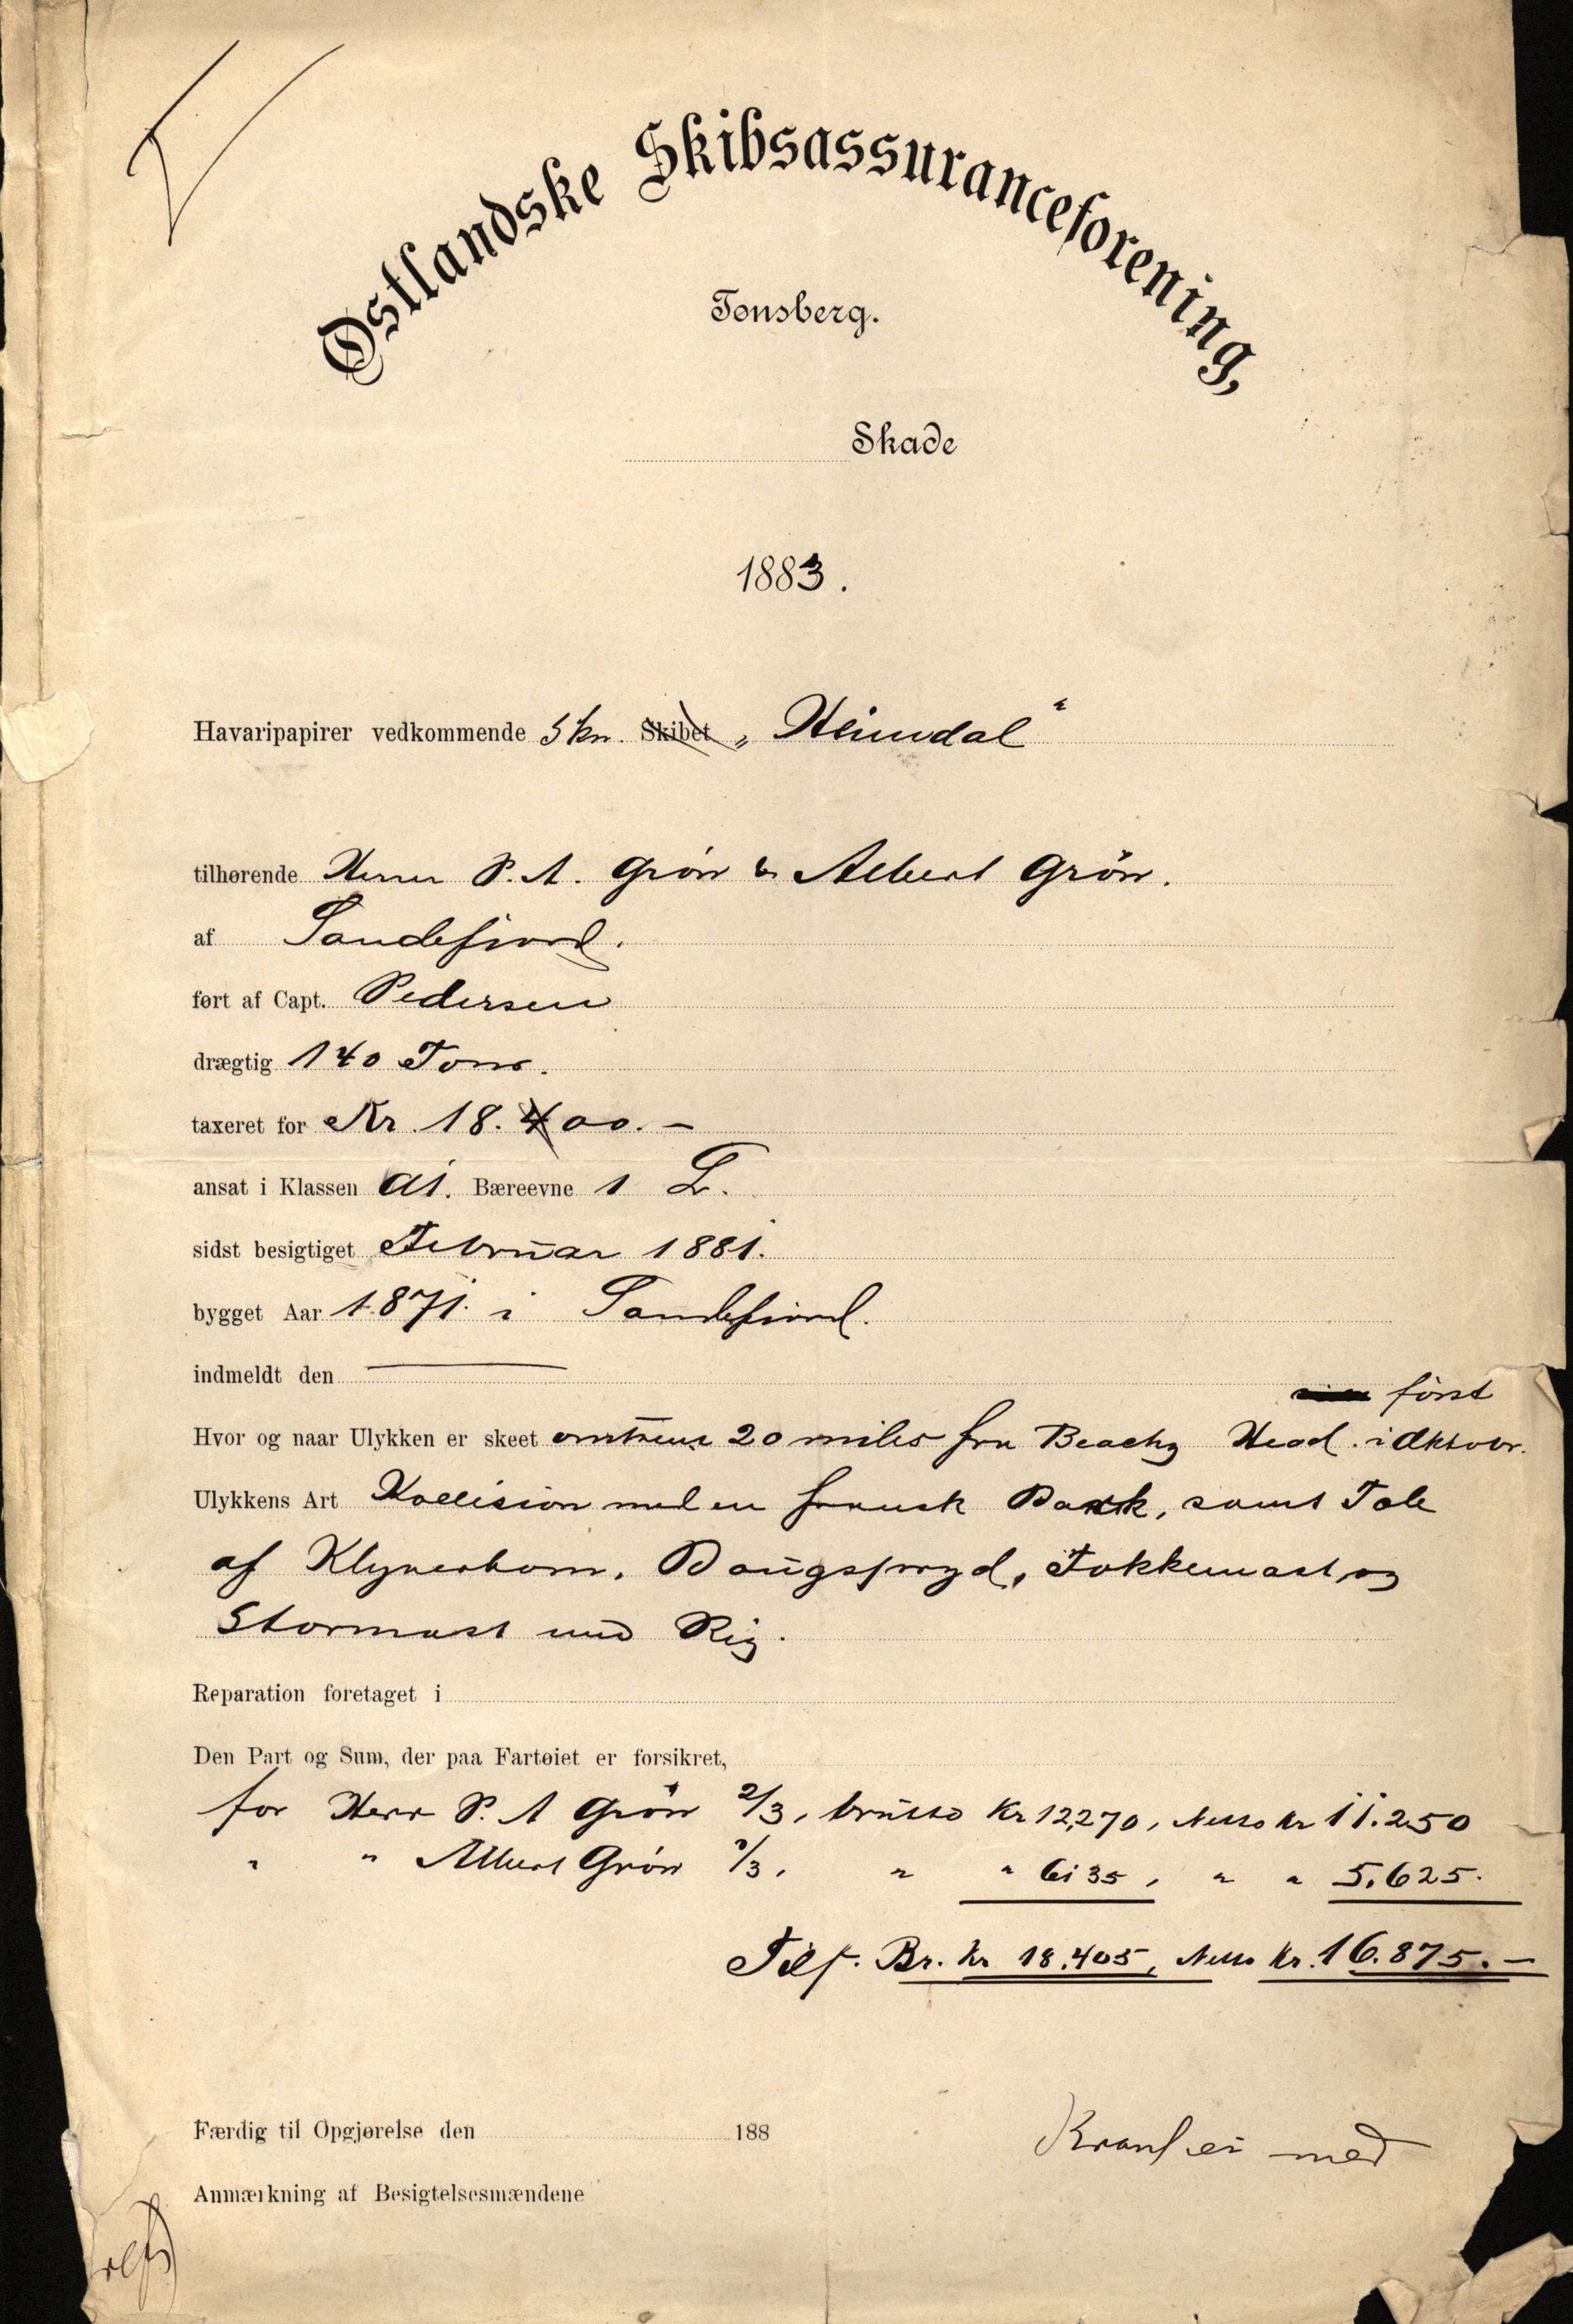 Østlandske Skibsassuranceforening,
Tønsberg.
Skade
1883.
Havaripapirer vedkommende Skn. Skibet „Heimdal“
tilhørende Herrer P. A. Grön & Albert Grön.
af Sandefjord.
ført af Capt. Pedersen
drægtig 140 Tons.
taxeret for Kr. 18.400.–
ansat i Klassen A1. Bæreevne 1 L.
sidst besigtiget Februar 1881.
bygget Aar 1871. i Sandefjord.
indmeldt den
først
Hvor og naar Ulykken er skeet omtrent 20 miles fra Beachy Head. i Oktobr.
Ulykkens Art Kollision med en fransk Bark, samt Tab
af Klyverbom, Baugspryd, Fokkemast og
Stormast med Rig.
Reparation foretaget i
Den Part og Sum, der paa Fartøiet er forsikret,
for Herr P. A Grön 2/3, brutto Kr 12,270, Netto Kr 11.250
" " Albert Grön 1/3, " " 6135, " " 5.625.
Tils. Br. Kr 18.405, Netto Kr. 16.875.–
Færdig til Opgjørelse den 188
med
Anmærkning af Besigtelsesmændene